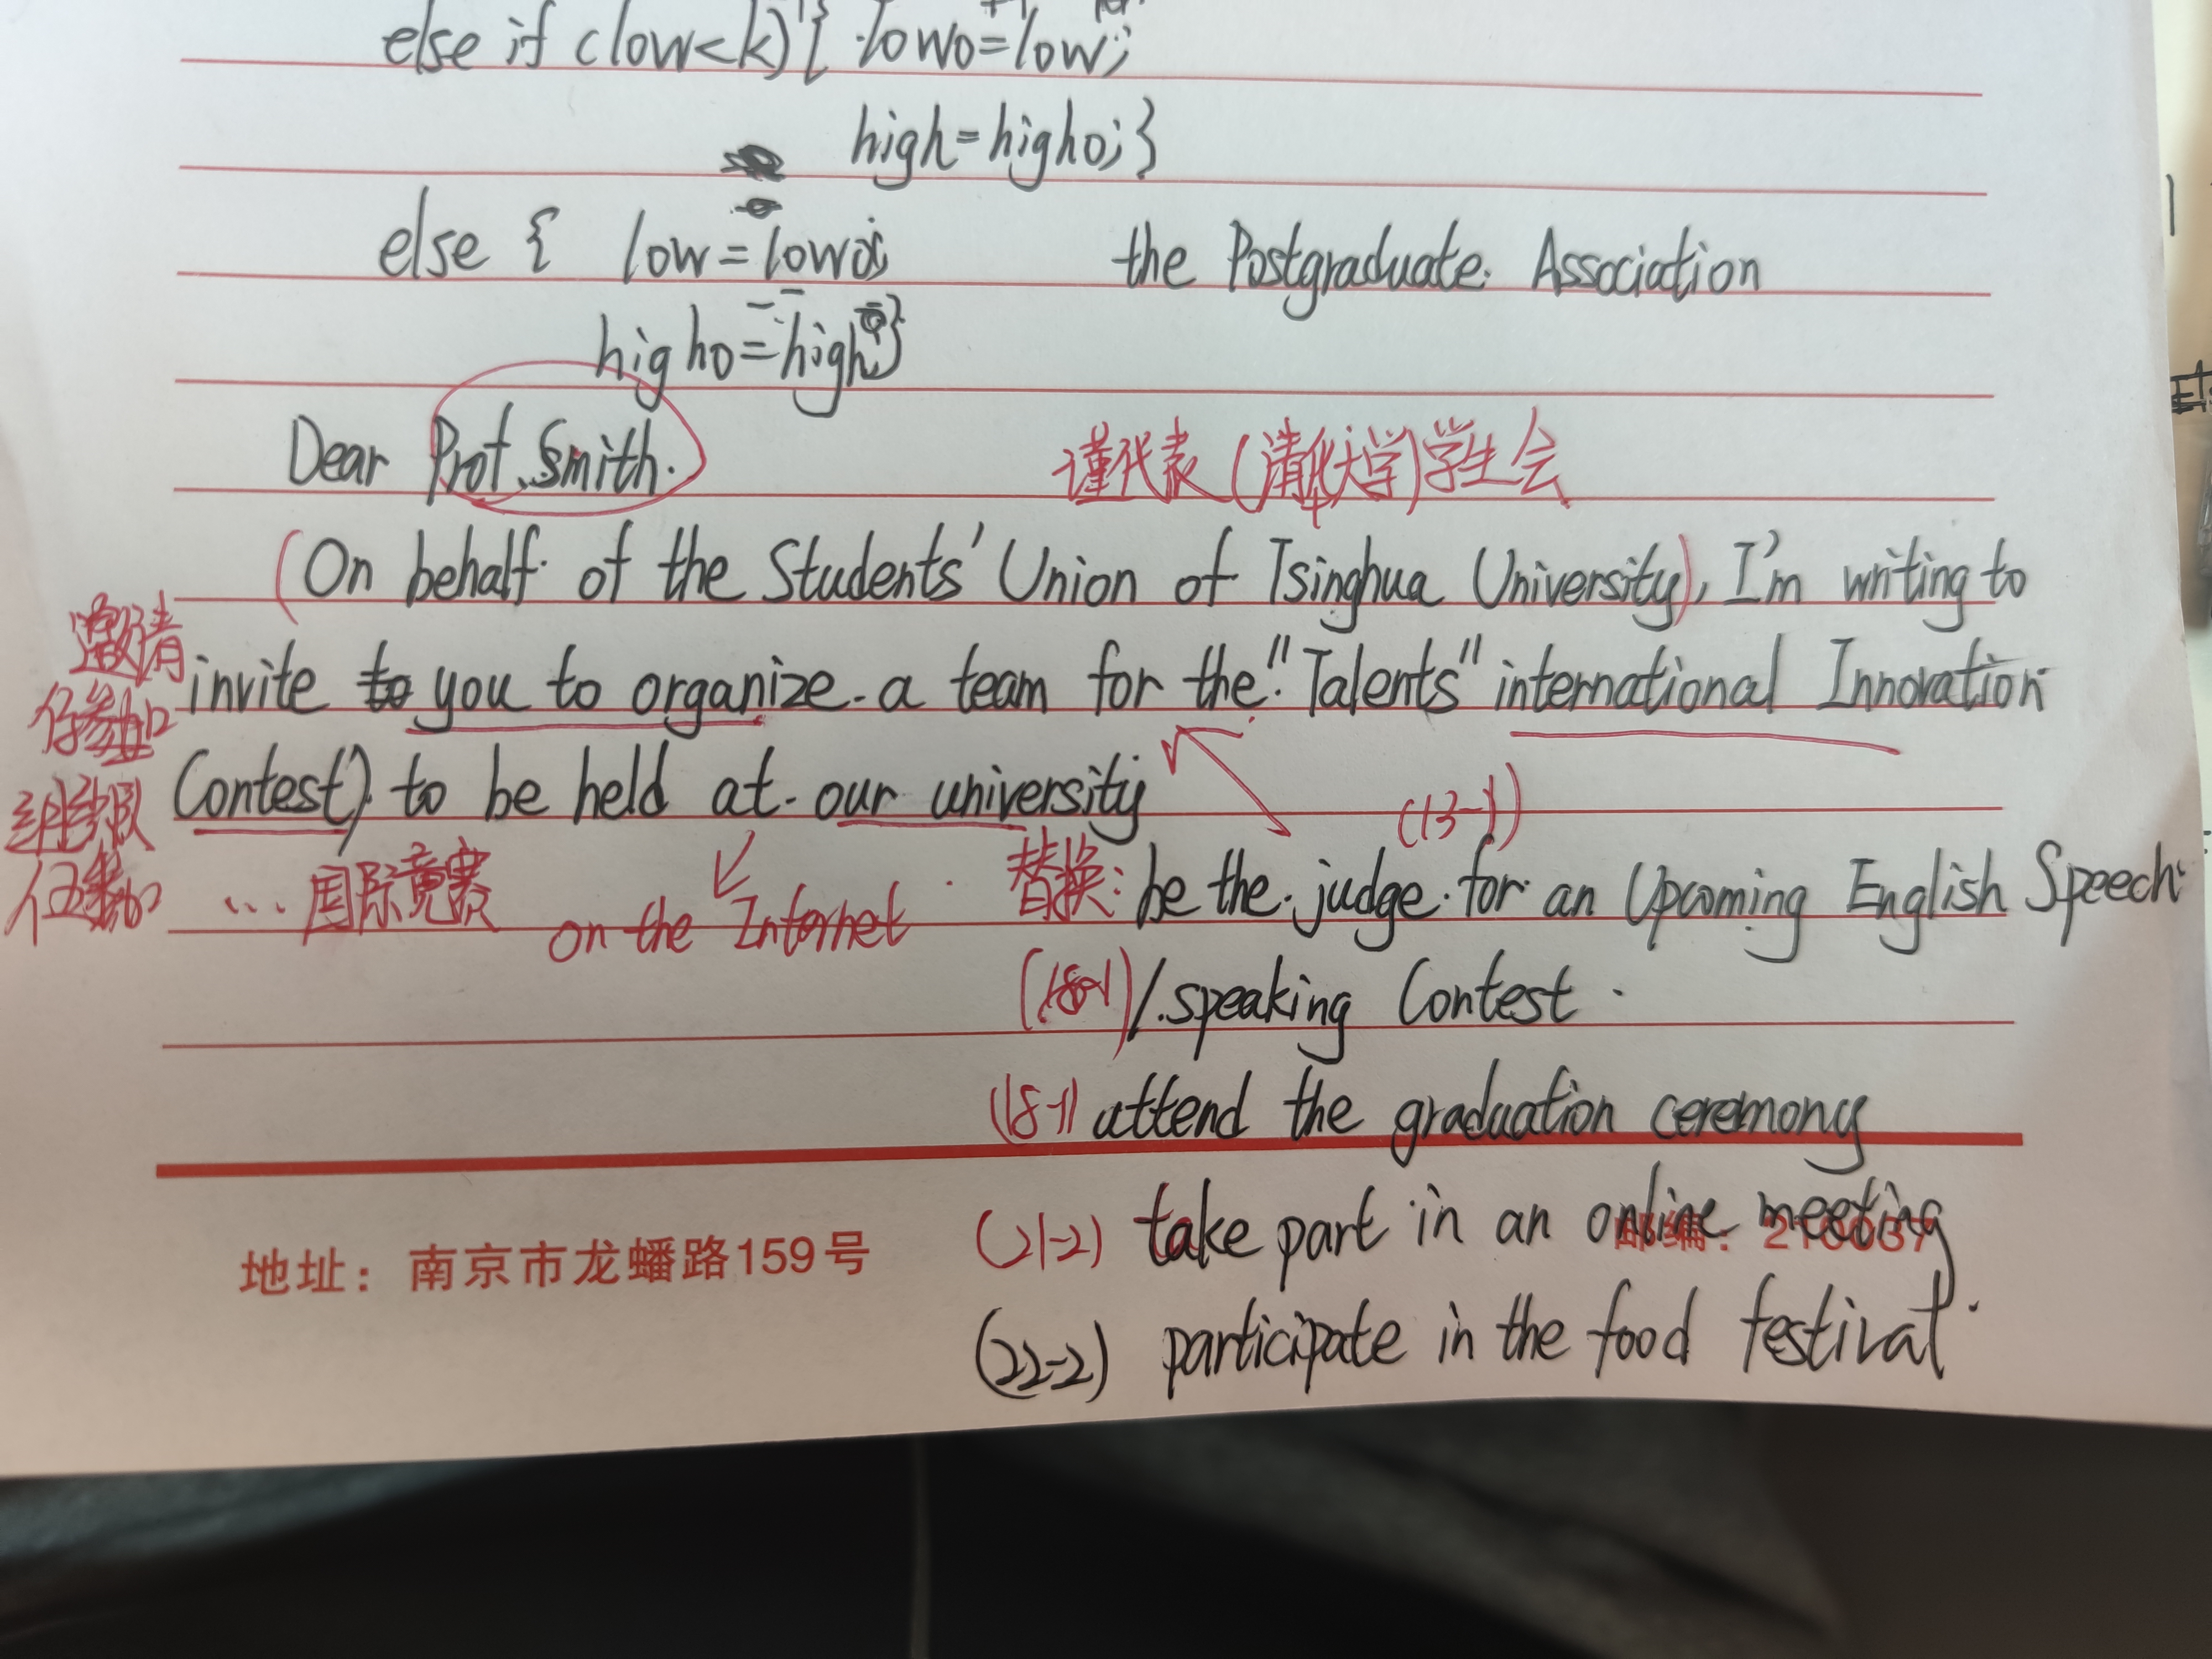 else if (low<k){ low0=low;
high=high0;}
else { low=low0;
the Postgraduate Association
high0=high}
Dear Prof. Smith.
谨代表(清华大学)学生会
(On behalf of the Students' Union of Tsinghua University), I'm writing to
邀请
invite to you to organize a team for the "Talents" international Innovation
你参加
Contest) to be held at our university
组织队
(13-1)
伍参加
...国际竞赛
on the Internet
替换: be the judge for an Upcoming English Speech
(18-1) / speaking Contest.
(18-1) attend the graduation ceremony
(21-2) take part in an online meeting
地址：南京市龙蟠路159号
邮编：210037
(22-2) participate in the food festival.